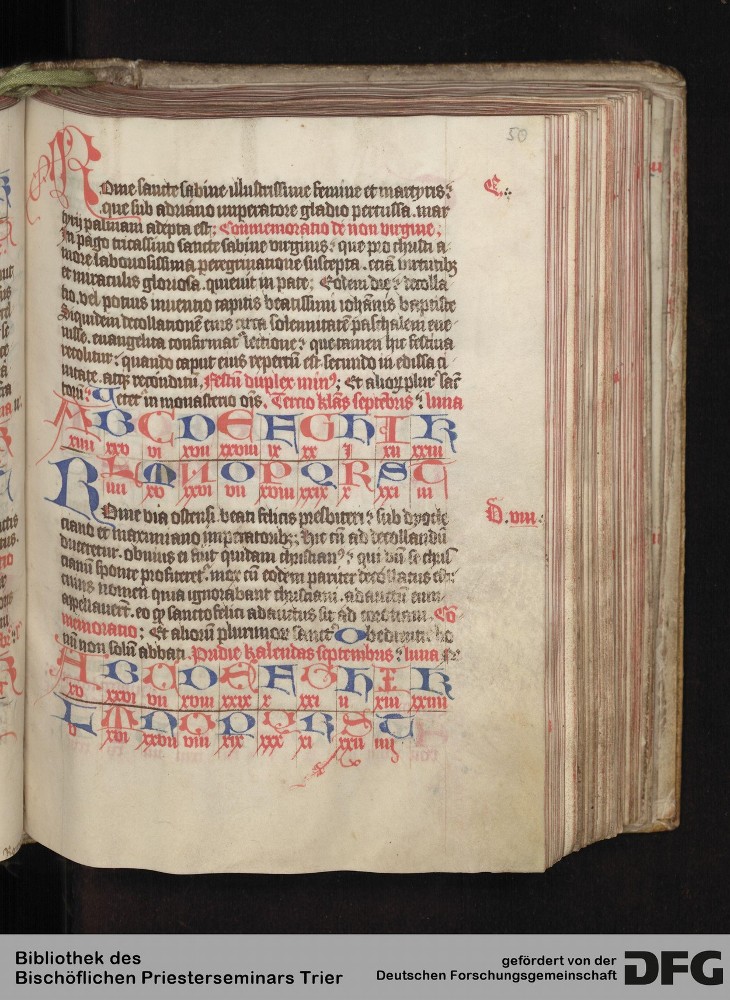 50
Rome sancte sabine illustrissime femine et martyris:
C.
que sub adriano imperatore gladio percussa . mar
tyrij palmam adepta est; Commemoratio de non virgine.
In pago tricassino sancte sabine virginis: que pro christi a
more laboriosissima peregrinatione suscepta . etiā virtutibꝫ
et miraculis gloriosa . quieuit in pace; Eodem die: decolla
tio, vel potius inuentio capitis beatissimi iohānis baptiste
Siquidem decollationē eius circa solennitatē paschalem eue
nisse . euangelica confirmat lectione: que tamen hic festiua
recolitur: quando caput eius repertū est secundo in edissa ci
uitate . atqꝫ reconditū, Festū duplex min⁹; Et alioꝝ plur' sāc
torū: Tacet in monasterio oīs. Tercio klās septēbris: luna
A B C D E F G H I K
xiiii xxv vi xvii xxviii ix xx I xii xxiii
L M N O P Q R S T
iiii xv xxvi vii xviii xxix x xxi iii
Rome via ostensi. beati felicis presbiteri: sub dyocle
D. viii.
ciano et maximiano imperatoribꝫ: Hic cū ad decollandū
duceretur . obuius ei fuit quidam christian⁹: qui dū se chris
tianū sponte profiteret' . mox cū eodem pariter decollatus est:
cuius nomen quia ignorabant christiani . adauctū eum
appellauerūt. eo ꝙ sancto felici adauctus sit ad coronam . Cō
memoratio; Et aliorū plurimor sanct' Obedienti. bo
nū non solū abbati. Pridie kalendas septembris: luna
A B C D E F G H I K
xv xxvi vii xviii xxix x xxi ii xiii xxiiii
L M N O P Q R S T
v xvi xxvii viii xix xxx xi xxii iiij
Bibliothek des
Bischöflichen Priesterseminars Trier
gefördert von der
Deutschen Forschungsgemeinschaft
DFG